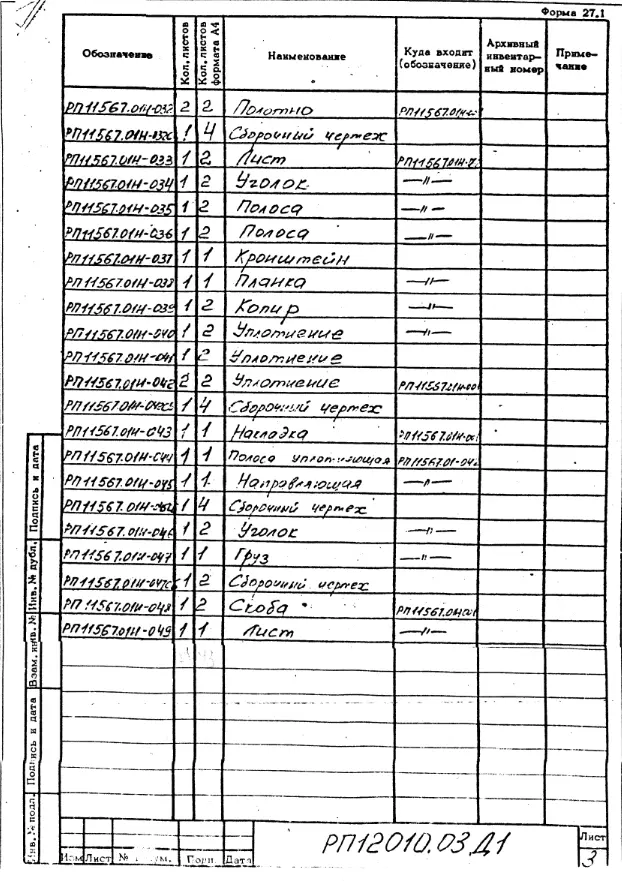 Форма 27.1
Обозначение Кол. листов Кол. листов формата А4 Наименование Куда входит (обозначение) Архивный инвентарный номер Примечание
РП11567.01Н-032 2 2 Полотно
1 4 Сборочный чертеж
РП11567.01Н-033 1 2 Лист
РП11567.01Н-034 1 2 Уголок —"—
РП11567.01Н-035 1 2 Полоса —"—
РП11567.01Н-036 1 2 Полоса —"—
РП11567.01Н-037 1 1 Кронштейн
РП11567.01Н-038 1 1 Планка —"—
РП11567.01Н-039 1 2 Копир —"—
РП11567.01Н-040 1 2 Уплотнение —"—
РП11567.01Н-041 1 2 Уплотнение
РП11567.01Н-042 2 2 Уплотнение
1 4 Сборочный чертеж
РП11567.01Н-043 1 1 Накладка
РП11567.01Н-044 1 1 Полоса уплотняющая
РП11567.01Н-045 1 1 Направляющая —"—
1 4 Сборочный чертеж
РП11567.01Н-046 1 2 Уголок —"—
РП11567.01Н-047 1 1 Груз —"—
1 2 Сборочный чертеж
РП11567.01Н-048 1 2 Скоба
РП11567.01Н-049 1 1 Лист —"—
Подпись и дата
Инв. № дубл.
Взам. инв. №
Подпись и дата
Инв. № подл.
Изм Лист № Подп. Дата
РП12010.03 Д1
Лист
3